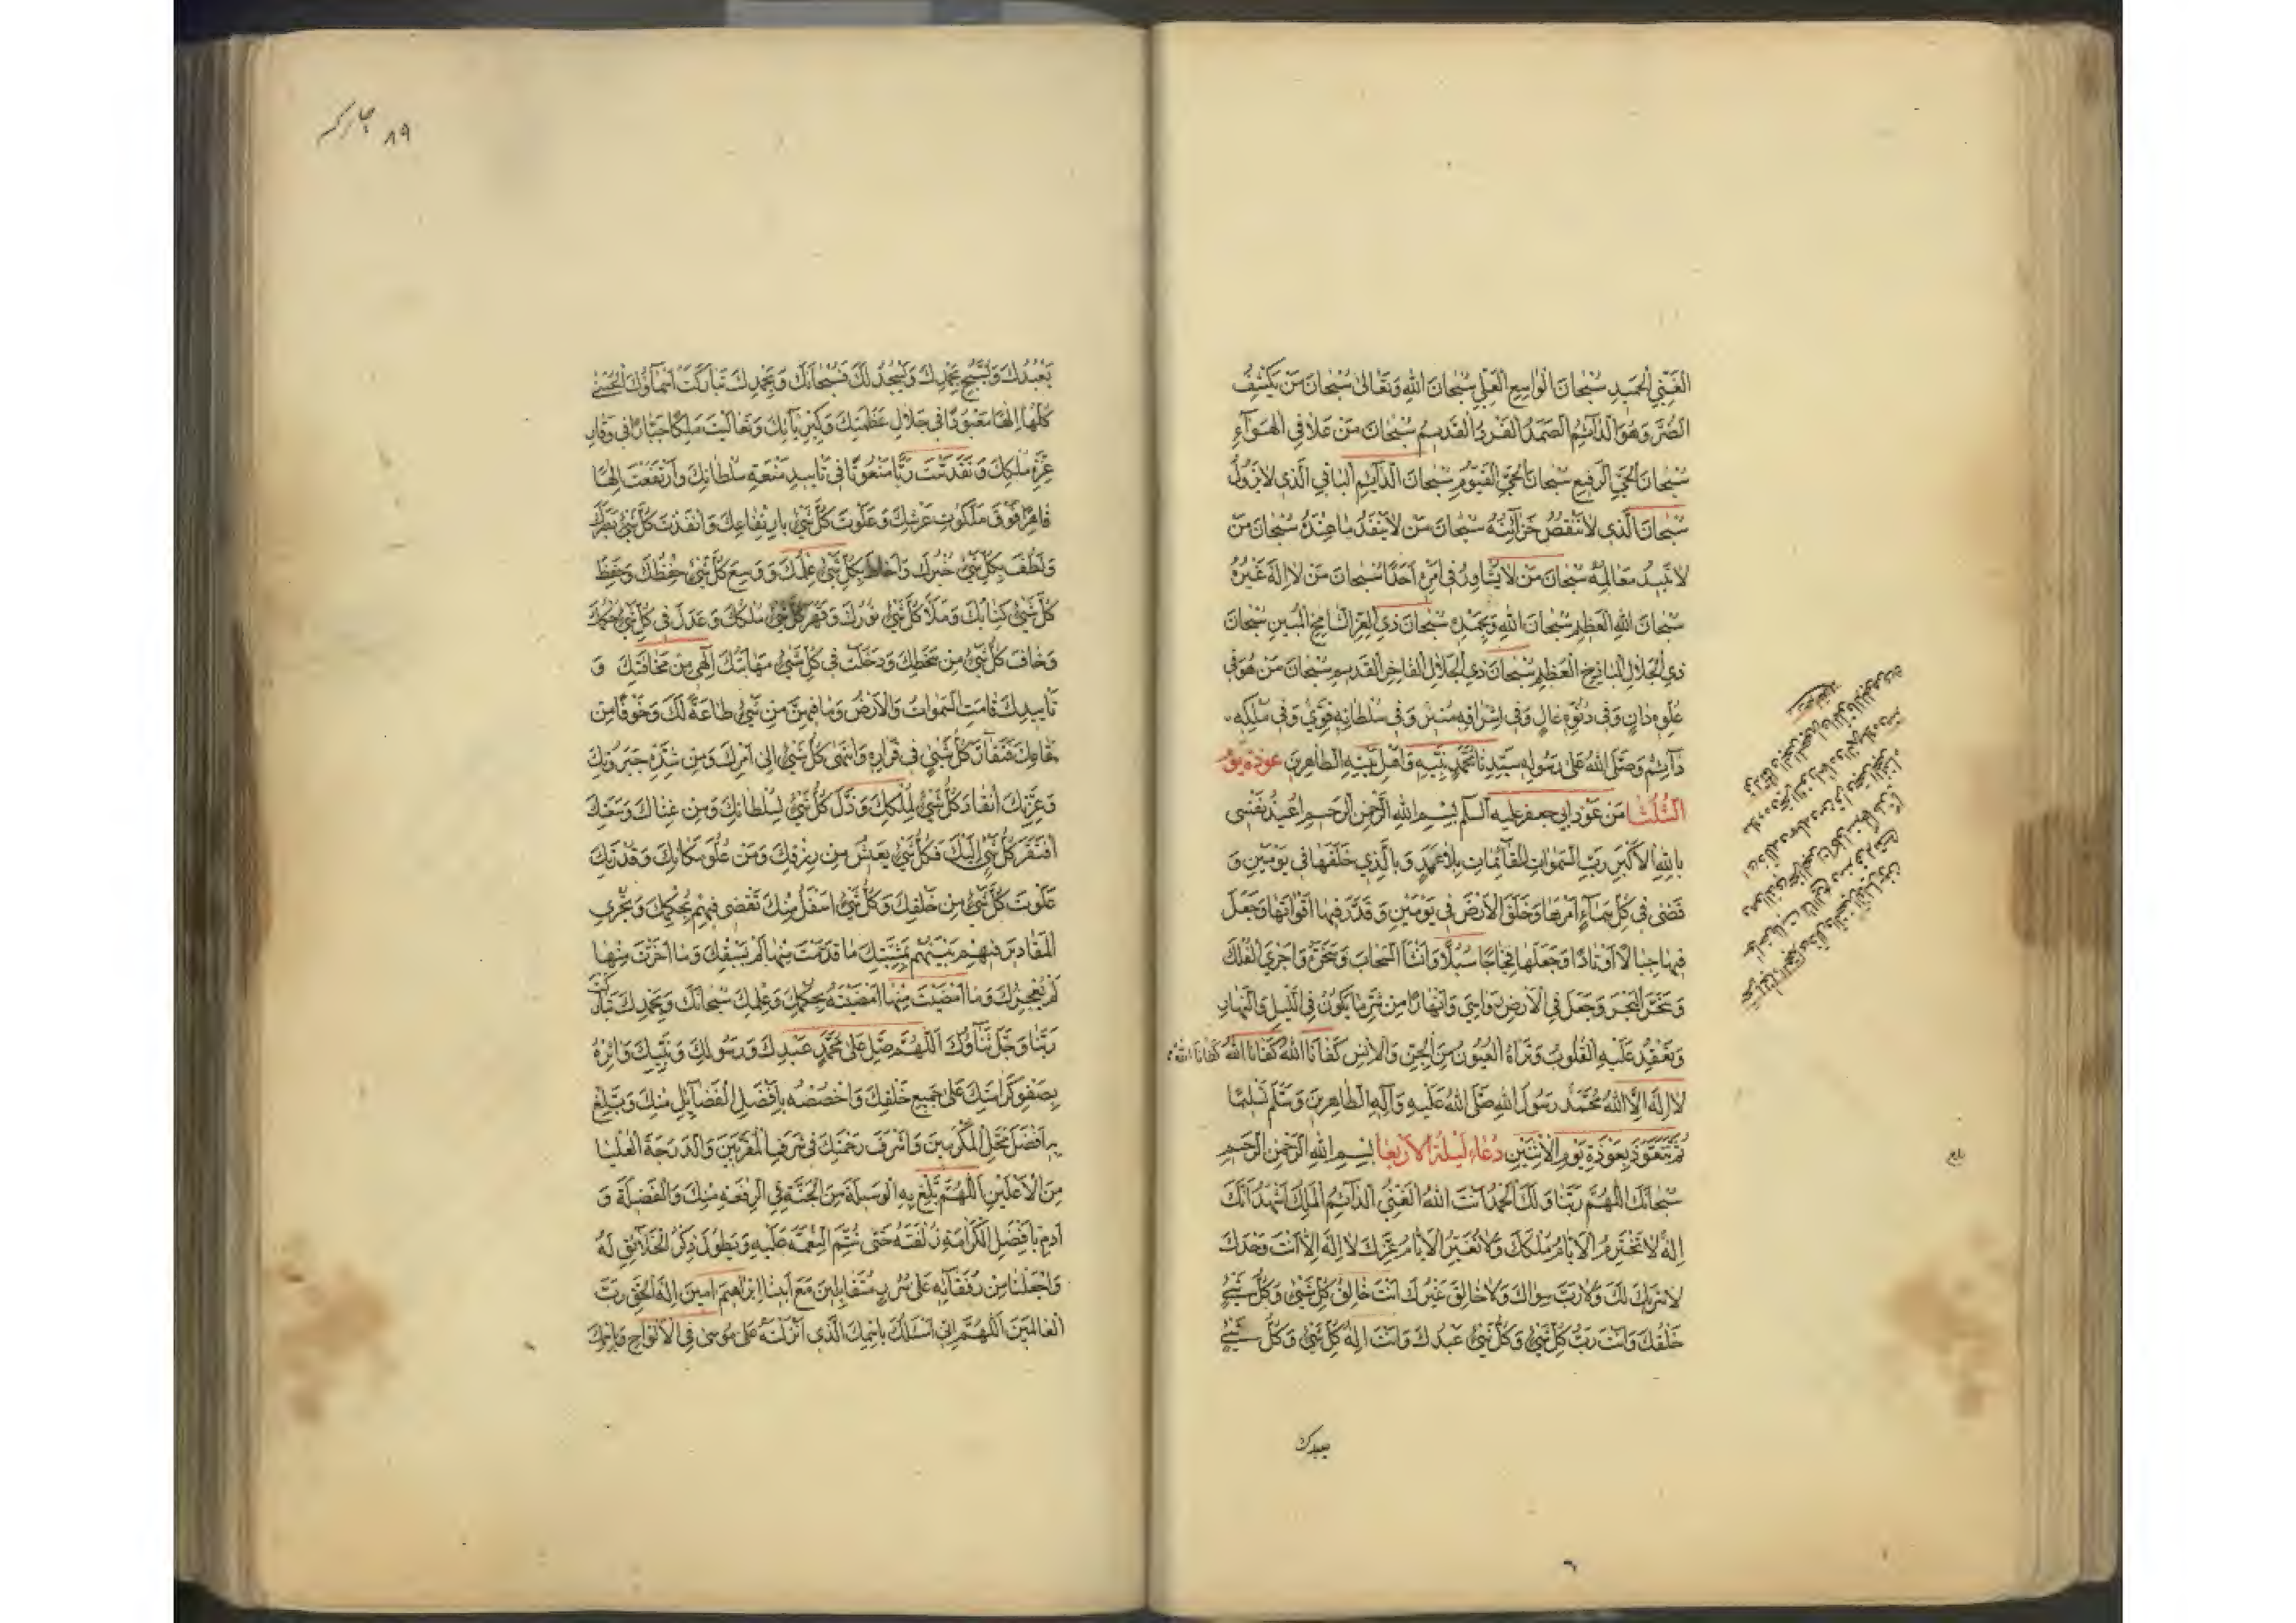 الغَنِيِّ الحَمِيدِ سُبْحَانَ الوَاسِعِ العَلِيِّ سُبْحَانَ اللهِ وَتَعَالىٰ سُبْحَانَ مَنْ يَكْشِفُ
الضُّرَّ وَهُوَ الدَّآئِمُ الصَّمَدُ الفَرْدُ القَدِيمُ سُبْحَانَ مَنْ عَلَا فِي الهَوَآءِ
سُبْحَانَ الحَيِّ الرَّفِيعِ سُبْحَانَ الحَيِّ القَيُّومِ سُبْحَانَ الدَّآئِمِ البَاقِي الَّذِي لَا يَزُولُ
سُبْحَانَ الَّذِي لَا تَنْقُصُ خَزَآئِنُهُ سُبْحَانَ مَنْ لَا يَنْفَدُ مَا عِنْدَهُ سُبْحَانَ مَنْ
لَا تَبِيدُ مَعَالِمُهُ سُبْحَانَ مَنْ لَا يُشَاوِرُ فِي أَمْرِهِ أَحَدًا سُبْحَانَ مَنْ لَا إِلَهَ غَيْرُهُ
سُبْحَانَ اللهِ العَظِيمِ سُبْحَانَ اللهِ وَبِحَمْدِهِ سُبْحَانَ ذِي العِزِّ الشَّامِخِ المُبِينِ سُبْحَانَ
ذِي الجَلَالِ البَاذِخِ العَظِيمِ سُبْحَانَ ذِي الجَلَالِ الفَاخِرِ القَدِيمِ سُبْحَانَ مَنْ هُوَ فِي
عُلُوِّهِ دَانٍ وَفِي دُنُوِّهِ عَالٍ وَفِي إِشْرَاقِهِ مُنِيرٌ وَفِي سُلْطَانِهِ قَوِيٌّ وَفِي مُلْكِهِ
دَآئِمٌ وَصَلَّى اللهُ عَلَى رَسُولِهِ سَيِّدِنَا مُحَمَّدٍ نَبِيِّهِ وَأَهْلِ بَيْتِهِ الطَّاهِرِينَ عوذة يَوْم
الثلثا مَنْ عَوْذِ ابي جعفر عليه السلم بِسْمِ اللهِ الرَّحْمٰنِ الرَّحِيمِ أُعِيذُ نَفْسِي
بِاللهِ الأَكْبَرِ رَبِّ السَّمٰوَاتِ القَآئِمَاتِ بِلَا عَمَدٍ وَبِالَّذِي خَلَقَهَا فِي يَوْمَيْنِ وَ
قَضَى فِي كُلِّ سَمَآءٍ أَمْرَهَا وَخَلَقَ الأَرْضَ فِي يَوْمَيْنِ وَقَدَّرَ فِيهَا أَقْوَاتَهَا وَجَعَلَ
فِيهَا جِبَالًا أَوْتَادًا وَجَعَلَهَا فِجَاجًا سُبُلًا وَأَنْشَأَ السَّحَابَ وَسَخَّرَهُ وَأَجْرَى الفُلْكَ
وَسَخَّرَ البَحْرَ وَجَعَلَ فِي الأَرْضِ رَوَاسِيَ وَأَنْهَارًا مِنْ شَرِّ مَا يَكُونُ فِي اللَّيْلِ وَالنَّهَارِ
وَتَعْقِدُ عَلَيْهِ القُلُوبُ وَتَرَاهُ العُيُونُ مِنَ الجِنِّ وَالأِنْسِ كَفَانَا اللهُ كَفَانَا اللهُ كَفَانَا اللهُ
لَا إِلَهَ إِلَّا اللهُ مُحَمَّدٌ رَسُولُ اللهِ صَلَّى اللهُ عَلَيْهِ وَآلِهِ الطَّاهِرِينَ وَسَلَّمَ تَسْلِيمًا
ثُمَّ تَتَعَوَّذُ بِعَوْذَةِ يَوْمِ الأِثْنَيْنِ دُعَاءُ لَيْلَةِ الأَرْبِعَا بِسْمِ اللهِ الرَّحْمٰنِ الرَّحِيمِ
سُبْحَانَكَ اللَّهُمَّ رَبَّنَا وَلَكَ الحَمْدُ أَنْتَ اللهُ الغَنِيُّ الدَّآئِمُ المَلِكُ أَشْهَدُ أَنَّكَ
إِلَهٌ لَا تَخْتَرِمُ الأَيَّامُ مُلْكَكَ وَلَا تُغَيِّرُ الأَيَّامُ عِزَّكَ لَا إِلَهَ إِلَّا أَنْتَ وَحْدَكَ
لَا شَرِيكَ لَكَ وَلَا رَبَّ سِوَاكَ وَلَا خَالِقَ غَيْرُكَ أَنْتَ خَالِقُ كُلِّ شَيْءٍ وَكُلُّ شَيْءٍ
خَلْقُكَ وَأَنْتَ رَبُّ كُلِّ شَيْءٍ وَكُلُّ شَيْءٍ عَبْدُكَ وَأَنْتَ إِلَهُ كُلِّ شَيْءٍ وَكُلُّ شَيْءٍ
يعبدك
بلغ
٨٩
يَعْبُدُكَ وَيُسَبِّحُ بِحَمْدِكَ وَيَسْجُدُ لَكَ فَسُبْحَانَكَ وَبِحَمْدِكَ تَبَارَكَتْ أَسْمَآؤُكَ الحُسْنَى
كُلُّهَا إِلٰهًا مَعْبُودًا فِي جَلَالِ عَظَمَتِكَ وَكِبْرِيَآئِكَ وَتَعَالَيْتَ مَلِكًا جَبَّارًا فِي وَقَارِ
عِزَّةِ مُلْكِكَ وَتَقَدَّسْتَ رَبًّا مَنْعُوتًا فِي تَأْيِيدِ مَنَعَةِ سُلْطَانِكَ وَارْتَفَعْتَ إِلٰهًا
قَاهِرًا فَوْقَ مَلَكُوتِ عَرْشِكَ وَعَلَوْتَ كُلَّ شَيْءٍ بِارْتِفَاعِكَ وَأَنْفَذْتَ كُلَّ شَيْءٍ بَصَرُكَ
وَلَطُفَ بِكُلِّ شَيْءٍ خُبْرُكَ وَأَحَاطَ بِكُلِّ شَيْءٍ عِلْمُكَ وَوَسِعَ كُلَّ شَيْءٍ حِفْظُكَ وَحَفِظَ
كُلَّ شَيْءٍ كِتَابُكَ وَمَلَأَ كُلَّ شَيْءٍ نُورُكَ وَقَهَرَ كُلَّ شَيْءٍ مُلْكُكَ وَعَدَلَ فِي كُلِّ شَيْءٍ حُكْمُكَ
وَخَافَ كُلُّ شَيْءٍ مِنْ سَخَطِكَ وَدَخَلَتْ فِي كُلِّ شَيْءٍ مَهَابَتُكَ إِلٰهِي مِنْ مَخَافَتِكَ وَ
تَأْيِيدِكَ قَامَتِ السَّمٰوَاتُ وَالأَرْضُ وَمَا فِيهِنَّ مِنْ شَيْءٍ طَاعَةً لَكَ وَخَوْفًا مِنْ
مَقَامِكَ فَتَقَارَّ كُلُّ شَيْءٍ فِي قَرَارِهِ وَانْتَهَى كُلُّ شَيْءٍ إِلَى أَمْرِكَ وَمِنْ شِدَّةِ جَبَرُوتِكَ
وَعِزَّتِكَ انْقَادَ كُلُّ شَيْءٍ لِمُلْكِكَ وَذَلَّ كُلُّ شَيْءٍ لِسُلْطَانِكَ وَمِنْ غِنَاكَ وَسَعَتِكَ
افْتَقَرَ كُلُّ شَيْءٍ إِلَيْكَ فَكُلُّ شَيْءٍ يَعِيشُ مِنْ رِزْقِكَ وَمِنْ عُلُوِّ مَكَانِكَ وَقُدْرَتِكَ
عَلَوْتَ كُلَّ شَيْءٍ مِنْ خَلْقِكَ وَكُلُّ شَيْءٍ أَسْفَلُ مِنْكَ تَقْضِي فِيهِمْ بِحُكْمِكَ وَتُجْرِي
المَقَادِيرَ فِيهِمْ بَيْنَهُمْ بِمَشِيَّتِكَ مَا قَدَّمْتَ مِنْهَا لَمْ يَسْبِقْكَ وَمَا أَخَّرْتَ مِنْهَا
لَمْ يُعْجِزْكَ وَمَا أَمْضَيْتَ مِنْهَا أَمْضَيْتَهُ بِحُكْمِكَ وَعِلْمِكَ سُبْحَانَكَ وَبِحَمْدِكَ تَبَارَكْتَ
رَبَّنَا وَجَلَّ ثَنَآؤُكَ اللَّهُمَّ صَلِّ عَلَى مُحَمَّدٍ عَبْدِكَ وَرَسُولِكَ وَنَبِيِّكَ وَآثِرْهُ
بِصَفْوِ كَرَامَتِكَ عَلَى جَمِيعِ خَلْقِكَ وَاخْصُصْهُ بِأَفْضَلِ الفَضَآئِلِ مِنْكَ وَبَلِّغْ
بِهِ أَفْضَلَ مَحَلِّ المُكَرَّمِينَ وَأَشْرَفَ رَحْمَتِكَ فِي شَرَفِ المُقَرَّبِينَ وَالدَّرَجَةَ العُلْيَا
مِنَ الأَعْلَيْنَ اللَّهُمَّ بَلِّغْ بِهِ الوَسِيلَةَ مِنَ الجَنَّةِ فِي الرِّفْعَةِ مِنْكَ وَالفَضِيلَةِ وَ
أَدِمْ بِأَفْضَلِ الكَرَامَةِ زُلْفَتَهُ حَتَّى تُتِمَّ النِّعْمَةَ عَلَيْهِ وَيَطُولَ ذِكْرُ الخَلَآئِقِ لَهُ
وَاجْعَلْنَا مِنْ رُفَقَآئِهِ عَلَى سُرُرٍ مُتَقَابِلِينَ مَعَ أَبِينَا إِبْرَاهِيمَ آمِينَ إِلٰهَ الحَقِّ رَبَّ
العَالَمِينَ اللَّهُمَّ إِنِّي أَسْئَلُكَ بِاسْمِكَ الَّذِي أَنْزَلْتَهُ عَلَى مُوسَى فِي الأَلْوَاحِ وَبِاسْمِكَ